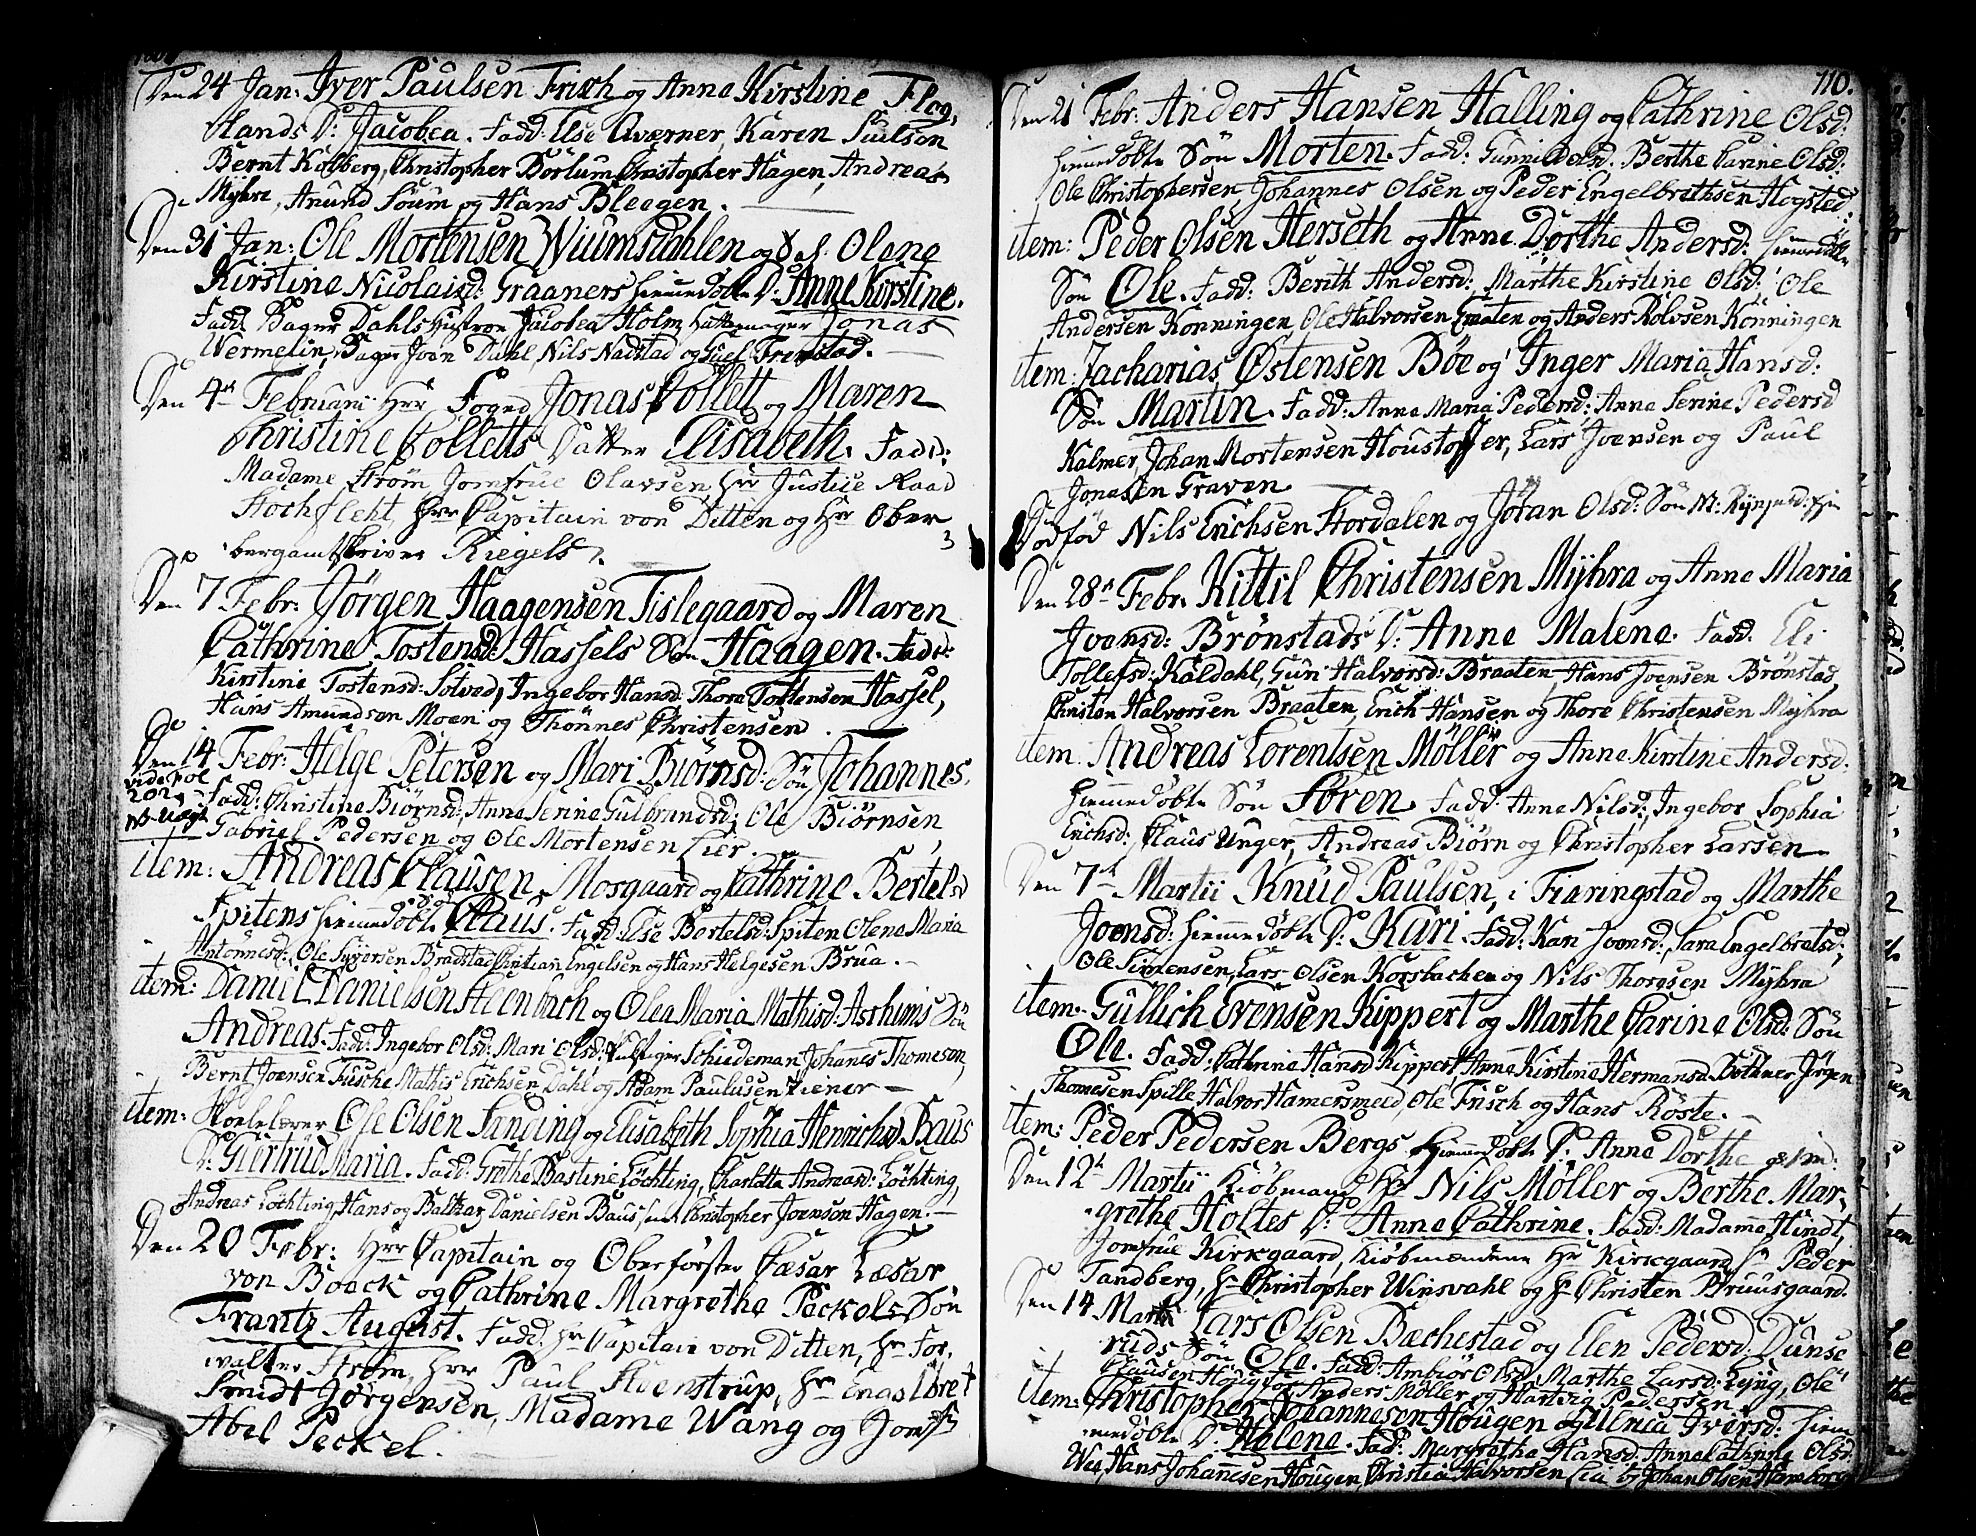 Den 24 Jan: Iver Paulsen Frisch og Anna Kirstine Flog,
stands D: Jacobea. Fadd: Else Averner, Karen Paulson
Bernt Kolberg, Christopher Borlum Christopher Hagen, Andreas
Myhre, Anund Soum og Hans Bleegen.
Den 31 Jan: Ole Mortensen Wiumsdahlen og Olene
Kirstine Nicolaisd: Graaners hiemmedøbte D: Anne Kirstine.
Fadd Bager Dahls Hustroe Jacobea Holm Hattemager Jonas
Wermelin, Bager Joen Dahl Nils Nadstad og Frenstad.
Den 4de Februarii Herr Foged Jonas Collett og Maren
Christine Colletts Datter Elisabeth. Fadd:
Madame Strøm Jomfrue Olavsen, Hr Justice Raad
Stockfleht, Herr Capitain von Ditten og Hr Ober
bergamtskriver Riegels.
Den 7 Febr: Jørgen Haagensen Tislegaard og Maren
Cathrine Tostensd: Hassels Søn Haagen. Fadd:
Kirstine Tostensd: Solved, Ingebor Hansd: Thora Tostensen Hassel,
Hans Amundsen Moen og Thønnes Christensen.
Den 14 Febr: Helge Petersen og Mari Biørnsd: Søn Johannes.
vide fol
202
Fadd: Christina Biørnsd: Anne Serine Gulbrandsd: Ole Biørnsen
Gabriel Pedersen og Ole Mortensen Lier.
item: Andreas Clausen Mosgaard og Cathrine Bertelsd
Spitens hiemmedøbt S. Claus. Fadd: Else Bertelsd: Spiten Olene Maria
Antonnesd: Ole Syversen Bradstad Christian Engelsen og Hans Helgesen Brua.
item: Daniel Danielsen Steenbach og Olea Maria Mathisd: Aserums Søn
Andreas. Fadd: Ingebor Olsd: Mari Olsd: Schiedeman Johannes Thomesen,
Bernt Joensen Fusche Mathis Erichsen Dahl og Adam Paulusen Kiener
item: Skolelærer Ole Olsen Sanding og Elisabeth Sophia Henrichsd. Baus
D: Giertrud Maria. Fadd: Grethe Bastine Løchting, Charlotta Andreasd: Løchting,
Andreas Løchting, Hans og Baltzar Danielsen Baus, samt Christopher Joensen Hagen.
Den 20 Febr: Herr Capitain og Oberførster Cæsar Læsar
von Boeck og Cathrine Margrethe Peckels Søn
Frantz August. Fadd. Hr Capitain von Ditten, Hr For,
walter Strøm, Herr Paul Steenstrup, Hr Enas Lbret
Smidt Jørgensen, Madame Wang og Jomf
Abel Peckel.
110.
Den 21 Febr: Anders Hansen Halling og Cathrine Olsd:
hiemmedøbte Søn Morten. Fadd: Gunnild Berthe Carine Olsd:
Ole Christophersen, Johannes Olsen og Peder Engelbrethsen Hogsted
item: Peder Olsen Herseth og Anne Dorthe Andersd: hiemmedøbte
Søn Ole. Fadd: Berith Andersd: Marthe Kirstine Olsd: Ole
Andersen Konningen Ole Halvorsen Enaten og Anders Rolvsen Könningen
item: Zacharias Østensen Bøe og Inger Maria Hansd:
Søn Martin. Fadd: Anne Maria Pedersd: Anne Serine Pedersd
Kalmer, Johan Mortensen Houstoffer, Lars Joensen og Paul
Jonasen Graven
Dødfød Nils Erichsen Stordalen og Jöran Olsd: Søn
Den 28de Febr. Kittil Christensen Myhra og Anne Maria
Joensd: Brönstads D: Anne Malene. Fadd. Eli
Tollefsd: Kaldahl, Guri Halvorsd: Braaten Hans Joensen Brönstad
Christen Halvorsen Braaten, Erich Hansen og Thore Christensen Myhra
item Andreas Lorentsen Möller og Anne Kirstine Andersd:
hiemmedøbte Søn Søren. Fadd. Anne Nilsd: Ingebor Sophia
Erichsd: Claus Unger, Andreas Biørn og Christopher Larsen
Den 7de Martii Knud Paulsen, i Fieringstad og Marthe
Joensd: hiemmedøbte D: Kari. Fadd: Kari Joensd: Sara Engelbretsd:
Ole Simensen, Lars Olsen Korsbachen og Nils Thoresen Myhra
item. Gullich Evensen Kippert og Marthe Carine Olsd: Søn
Ole. Fadd: Cathrine Hansd Kippert Anne Kirstine Hermansd. Böthner Jörgen
Thomesen Spille, Halvor Hamersmed, Ole Frisch og Hans Röste.
item: Peder Pedersen Bergs hiemmedøbte D: Anne Dorthe
Den 12te Martii Kiøbmand Hr Nils Möller og Berthe Mar,
grethe Holtes D: Anne Cathrine. Fadd: Madame Hindt,
Jomfrue Kirkgaard, Kiøbmændene Hr Kirkgaard Hr Peder
Tandberg, Hr Christopher Winsvahl og Hr Christen Bruusgaard.
Den 14 Martii Lars Olsen Bæchestad og Elen Pedersd: Dunse
ruds Søn Ole. Fadd: Ambiør Olsd. Marthe Larsd: Lyng, Ole
Clausen Hougen Anders Möller og Hartvig Pedersen.
item: Christopher Johannesen Hougen og Iversd: hiem
medøbte D: Helene. Fad: Margrethe Hansd: Anne Cathrine Olsd:
Wee, Hans Johannesen Hougen, Christia Halvorsen Lia og Johan Olsen